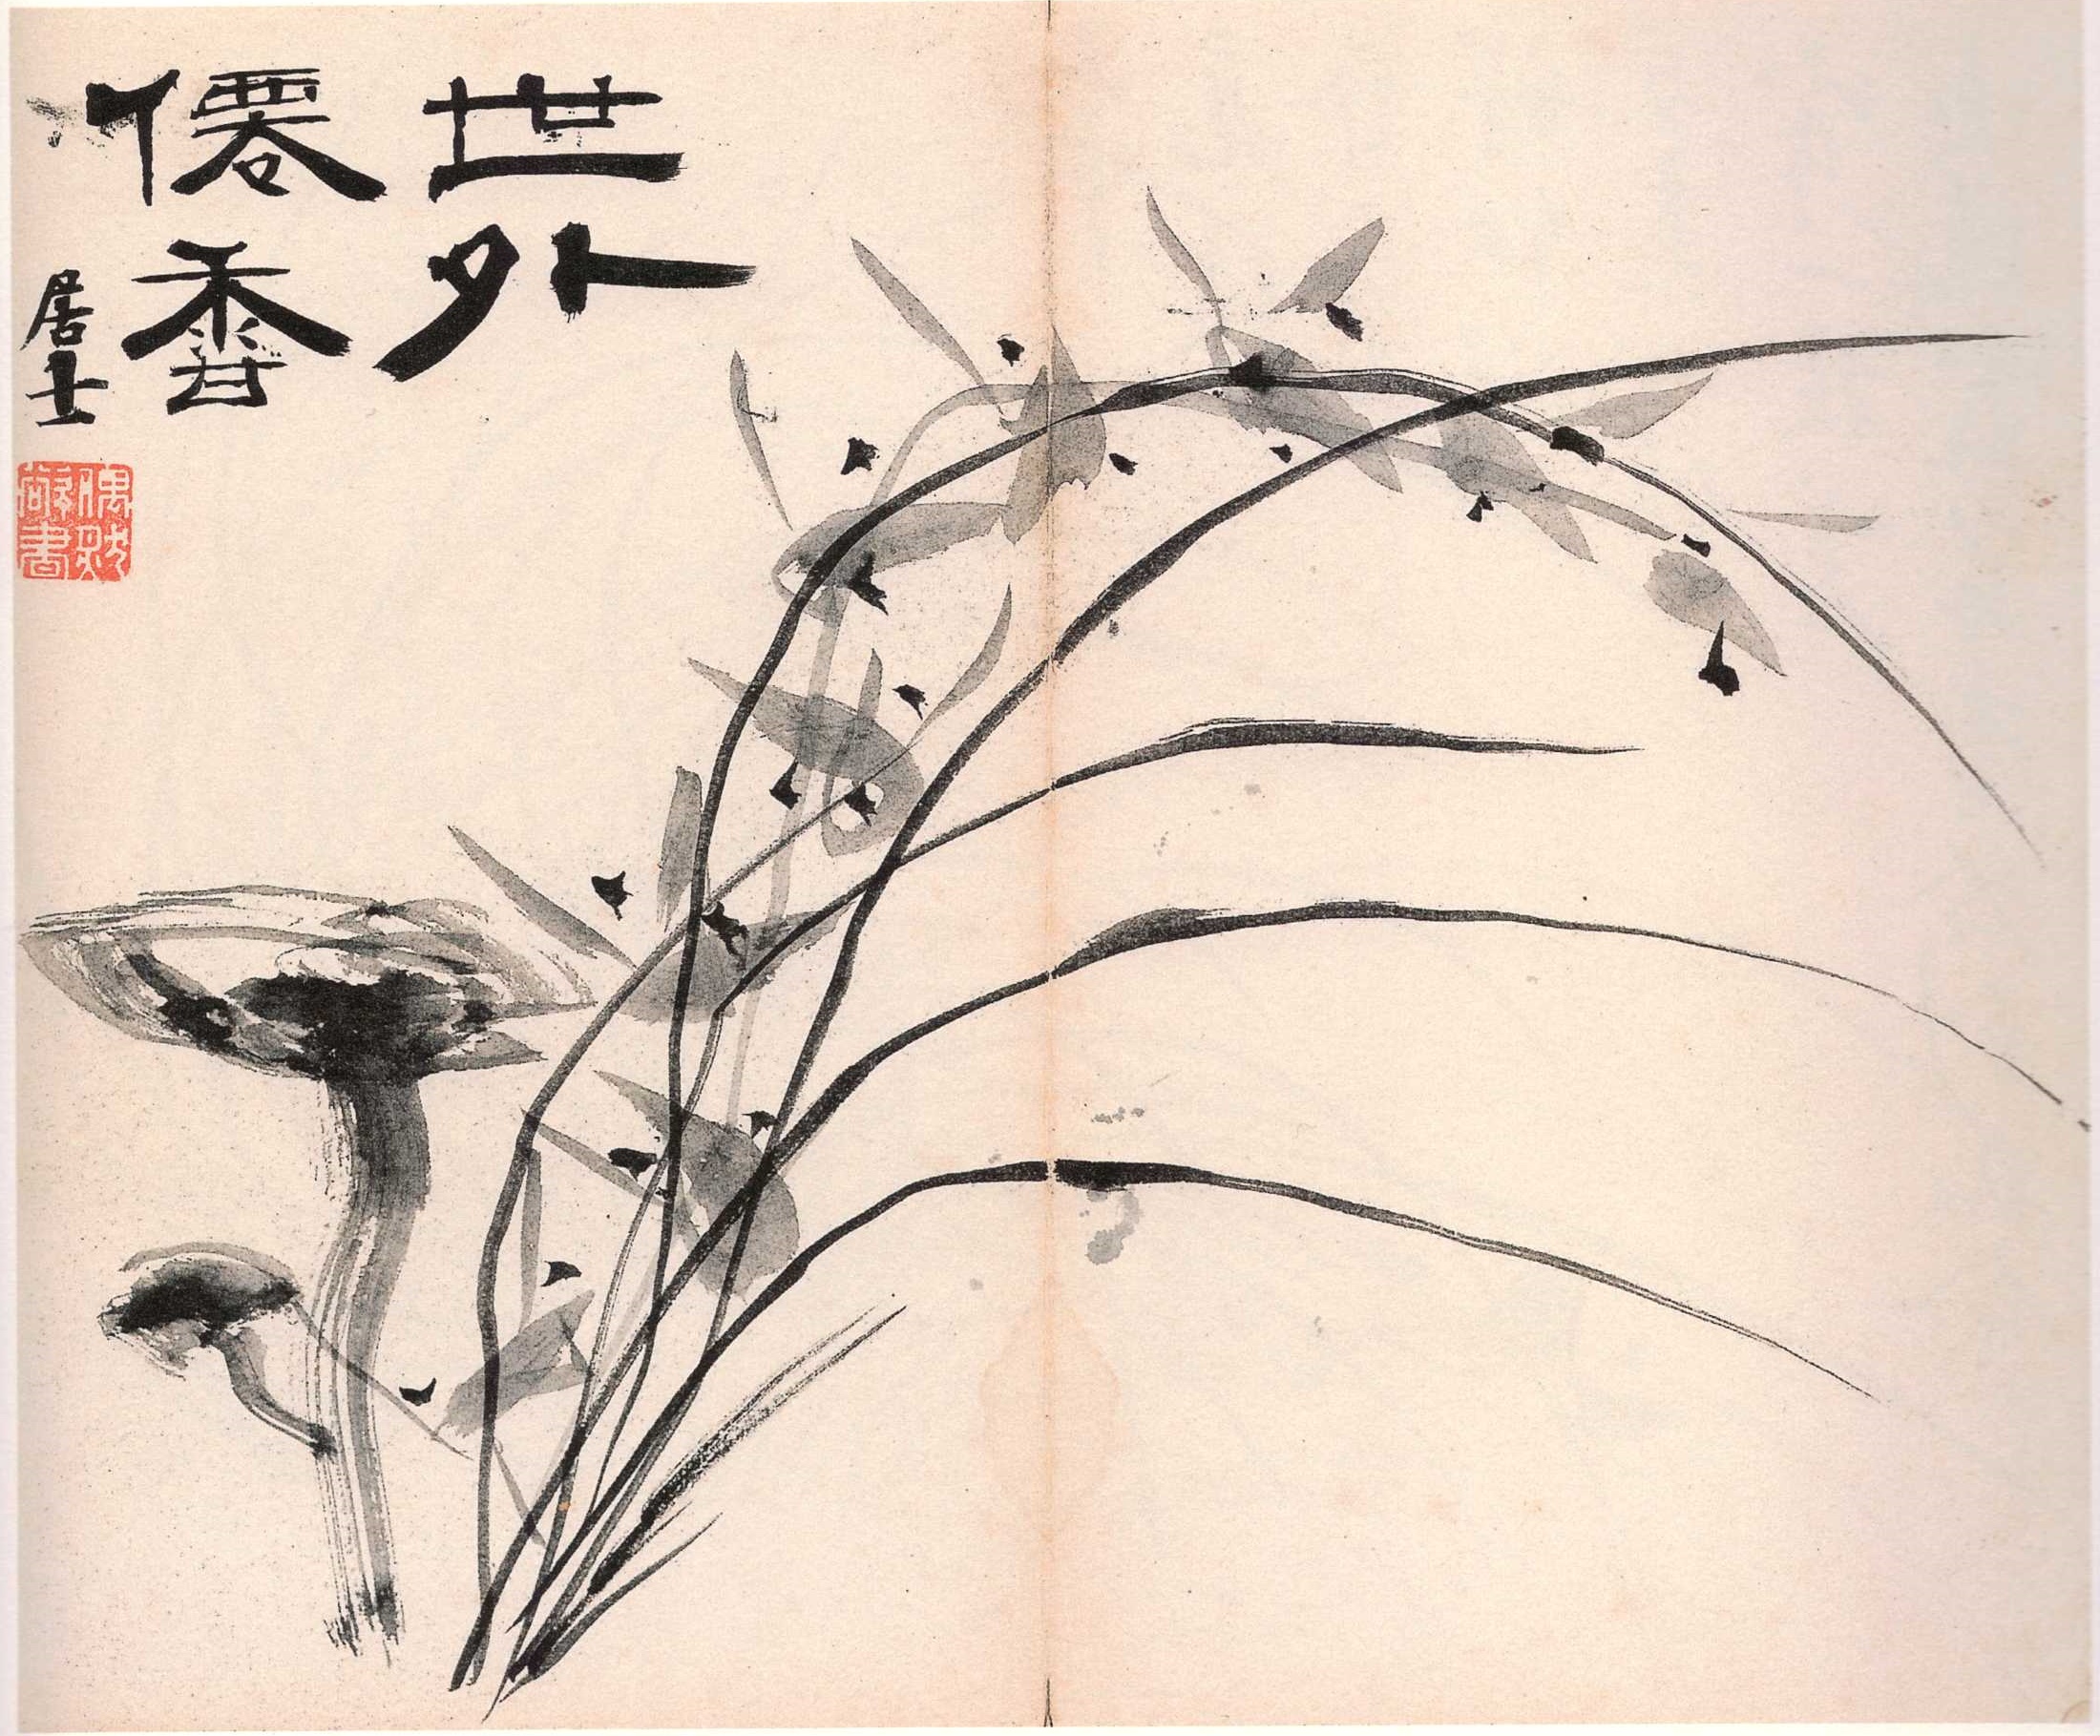 世外
僊香
居士